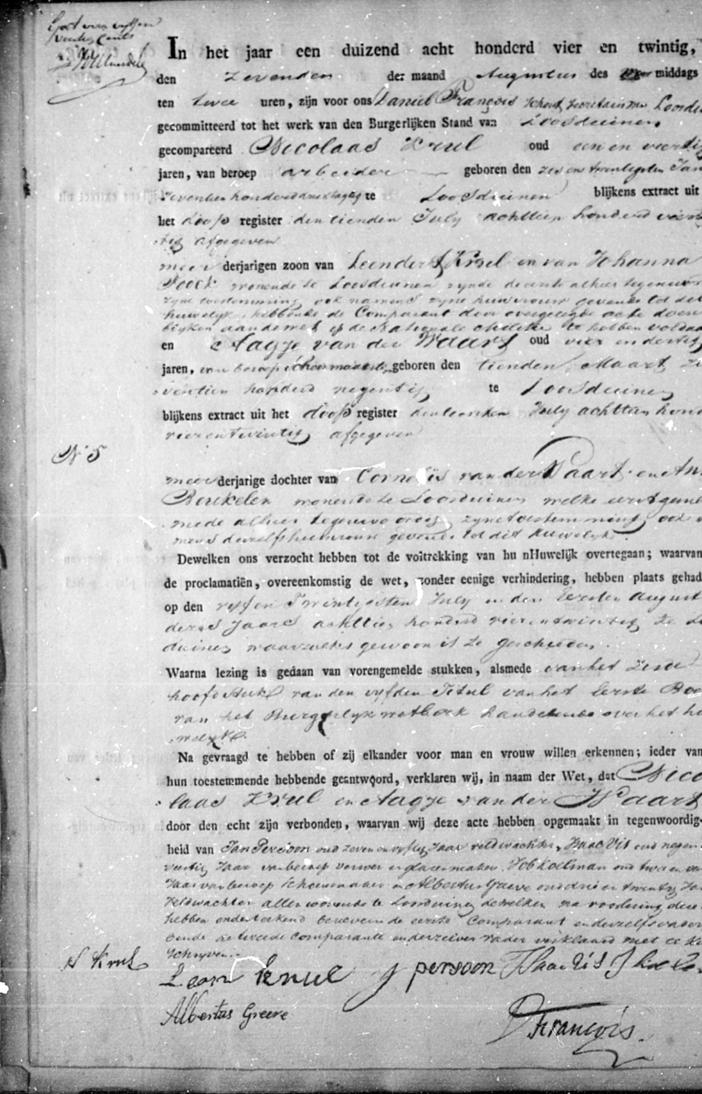 In het jaar een duizend acht honderd vier en twintig,
den zevenden der maand Augustus des middags
ten twee uren, zijn voor ons Daniel François Schout, Secretaris van Loosdu
gecommitteerd tot het werk van den Burgerlijken Stand van Loosduinen
gecompareerd Nicolaas Krul oud een en veertig
jaren, van beroep arbeider geboren den zes en twentigsten Jan
te Loosduinen blijkens extract uit
het doop register den tienden July achttien honderd vier
afgegeven
meer derjarigen zoon van Leendert Krul en van Johanna
wonende te Loosduinen zynde de alhier tegenwoor
zyne toestemming ook namens zyne huisvrouw gevende tot dit
huwelyk, hebbende de Comparant door overgelegde acte doen
blyken aan de wet op de Nationale Militie te hebben voldaan
en Aagje van der Waart oud vier en dertig
jaren, van beroep geboren den tienden Maart ze
ventien honderd negentig te Loosduinen
blijkens extract uit het doop register den tienden July achttien hond
vier en twintig afgegeven
N 5
meer derjarige dochter van Cornelis van der Waart en An
Beukelen wonende te Loosduinen welke eerstgene
mede alhier tegenwoordig zyne toestemming ook na
mens deszelfs huisvrouw gevende tot dit huwelyk
Dewelken ons verzocht hebben tot de voltrekking van hu nHuwelijk overtegaan; waarvan
de proclamatiën, overeenkomstig de wet, zonder eenige verhindering, hebben plaats gehad
op den vyf en Twintigsten July en den Eersten August
dezes Jaars achttien honderd vier en twintig te Lo
duinen waar zulks gewoon is te geschieden.
Waarna lezing is gedaan van vorengemelde stukken, alsmede van het zesde
hoofdstuk van den vyfden Titul van het Eerste Boe
van het Burgerlyk wetboek handelende over het hu
welyk
Na gevraagd te hebben of zij elkander voor man en vrouw willen erkennen; ieder van
hun toestemmende hebbende geantwoord, verklaren wij, in naam der Wet, dat Nico
laas Krul en Aagje van der Waart
door den echt zijn verbonden, waarvan wij deze acte hebben opgemaakt in tegenwoordig-
heid van Jan Persoon oud zeven en vyftig Jaar veldwachter, Isaac Vis oud negen
veertig Jaar van beroep verwer en glazemaker, Job Holtman oud twee en
Jaar van beroep Schoenmaker en Albertus Greeve oud drie en twintig Jaar
Veldwachter allen wonende te Loosduinen dewelken na voorlezing deze
hebben ondertekend benevens de eerste Comparant en deszelfs vader
de tweede comparante en derzelver vader verklaard niet te ku
Schryven.
N Krul
Leen krul J persoon Isaac Vis J hol
Albertus Greeve
D François.